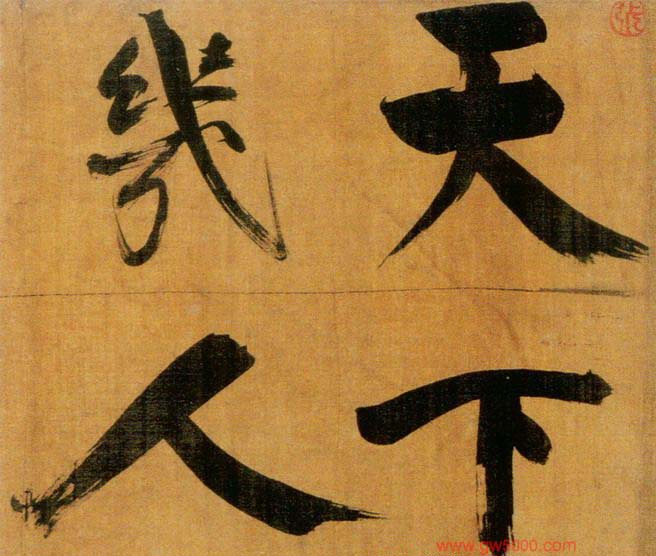 天下
幾人
www.gw5000.com